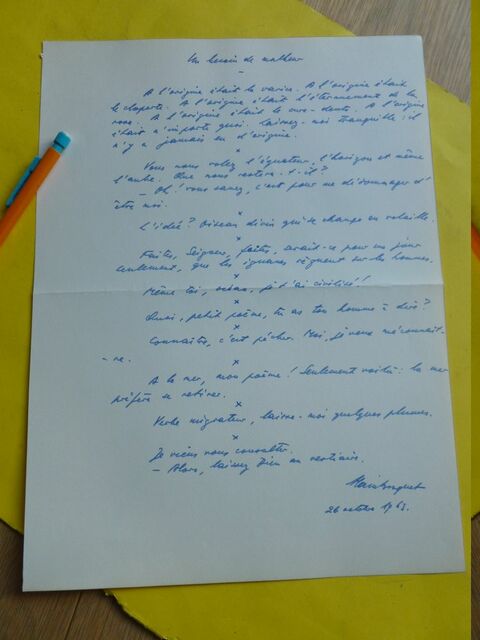 Un besoin de malheur
—
A l'origine était la varice. A l'origine était
le cloporte. A l'origine était l'éternuement de la
rose. A l'origine était le cure-dents. A l'origine
était n'importe quoi. Laissez-moi tranquille: il
n'y a jamais eu d'origine.
x
Vous nous volez l'équateur, l'horizon et même
l'aube. Que nous restera-t-il?
— Oh! vous savez, c'est pour me dédommager d'
être moi.
x
L'idée? Oiseau divin qui se change en volaille.
x
Faites, Seigneur, faites, serait-ce pour un jour
seulement, que les iguanes règnent sur les hommes.
x
Même toi, océan, je t'ai civilisé!
x
Quoi, petit poème, tu as ton homme à dire?
x
Connaître, c'est pécher. Moi, je veux méconnaît-
-re.
x
A la mer, mon poème! Seulement voilà: la mer
préfère se retirer.
x
Verbe migrateur, laisse-moi quelques plumes.
x
Je viens vous consulter.
— Alors, laissez Dieu au vestiaire.
Alain Bosquet
26 octobre 1963.